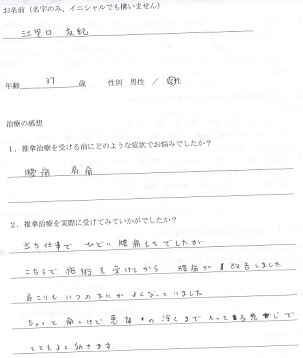 お名前（名字のみ、イニシャルでも構いません）
江里口 友紀
年齢 37 歳 性別 男性 ／ 女性
治療の感想
１．推拿治療を受ける前にどのような症状でお悩みでしたか？
腰痛 肩痛
２．推拿治療を実際に受けてみていかがでしたか？
立ち仕事で ひどい 腰痛もちでしたが
こちらで 施術 を 受けてから 腰痛が 改善しました
肩こりも いつのまにか よくなっていました
ちょっと 痛いけど 悪 の 深くまで 入って る感じで
とてもよく効きます。